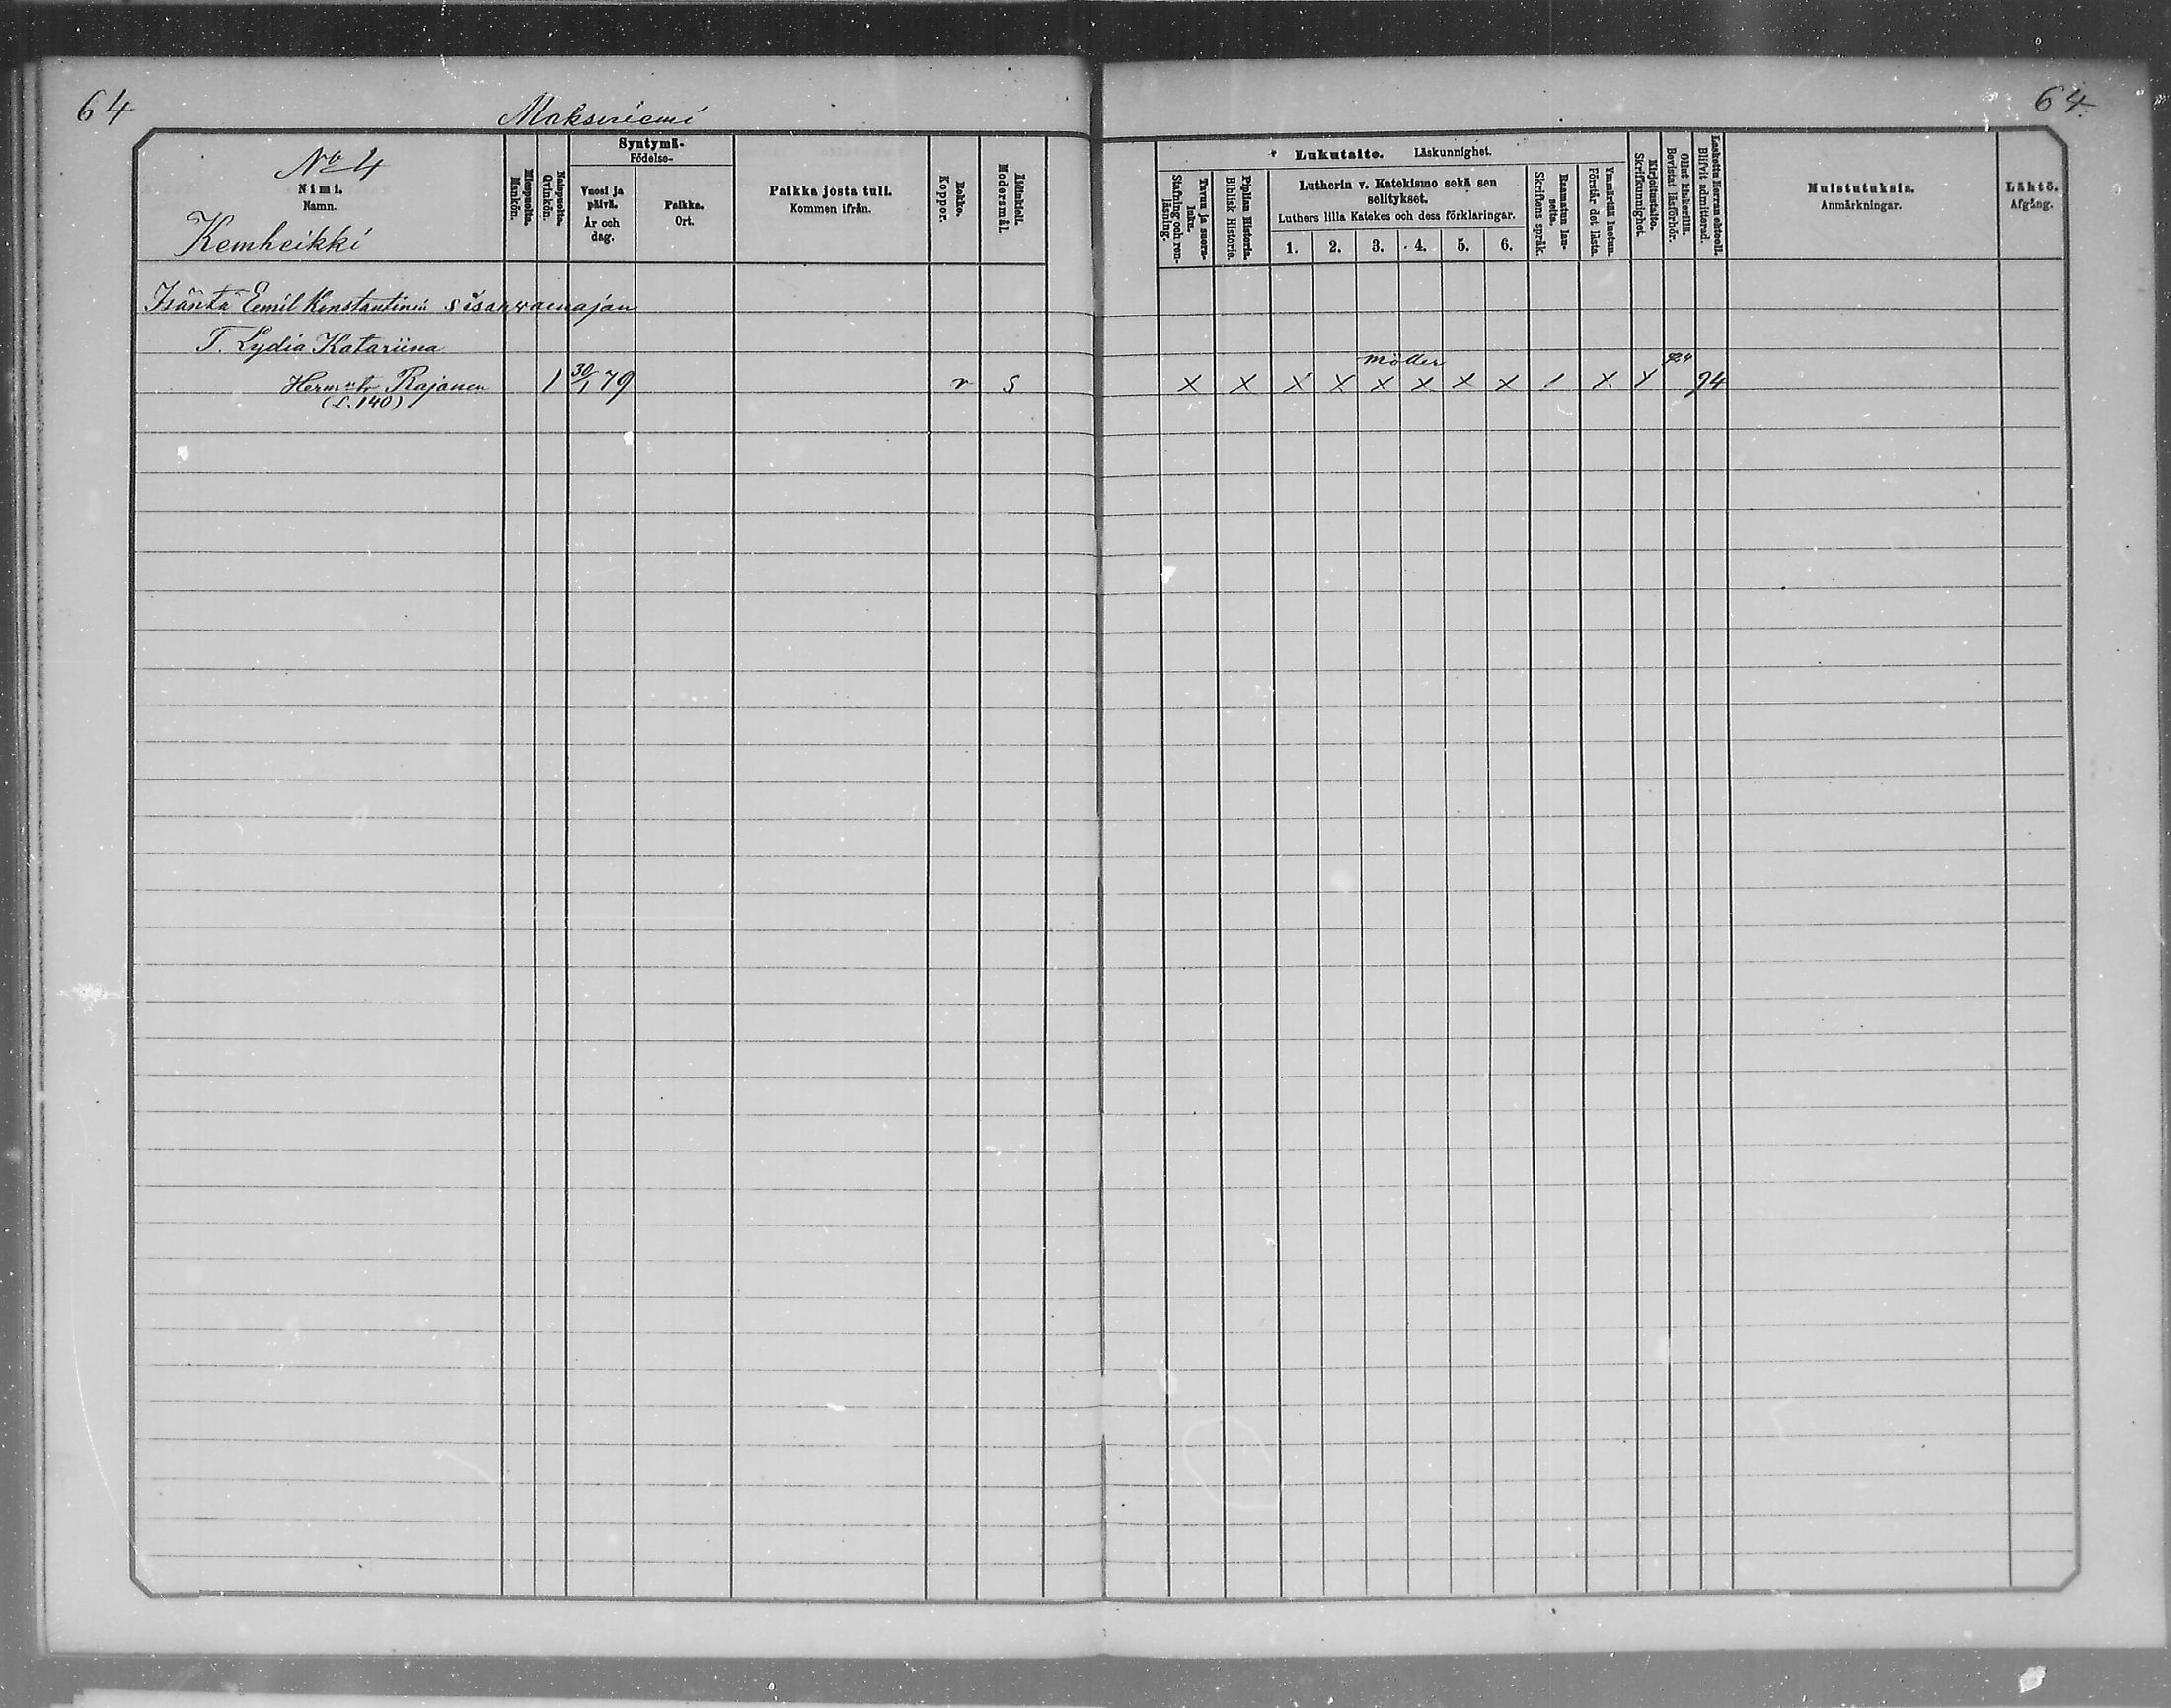 64
Maksniemi
64.
No 4
Nimi.
Namn.
Kemheikki
Miespuolia.
Mankön.
Naispuolia.
Qvinkön.
Syntymä-
Födelse-
Vuosi ja
päivä.
År och
dag.
Paikka.
Ort.
Paikka josta tuli.
Kommen ifrån.
Rokko.
Koppor.
Äidinkieli.
Modersmål.
Lukutaito. Läskunnighet.
Tavuu ja suora-
luku.
Stafning och ren-
läsning.
Piplian Historia.
Biblisk Historie.
Lutherin v. Katekismo sekä sen
selitykset.
Luthers lilla Katekes och dess förklaringar.
1. 2. 3. 4. 5. 6.
Raamatun lau-
seita.
Skriftens språk.
Ymmärtää luetun.
Förstår det lästa.
Kirjoitustaito.
Skrifkunnighet.
Ollut kinkerillä.
Bevistat läsförhör.
Laskettu Herran ehtooll.
Blifvit admitterad.
Muistutuksia.
Anmärkningar.
Lähtö.
Afgång.
Isäntä Eemil Konstantinin sisar
T. Lydia Katariina
Möller
Herm:tr Rajanen 1 30/1 79 r s X X X X X X X X / X X 94
(L. 140)